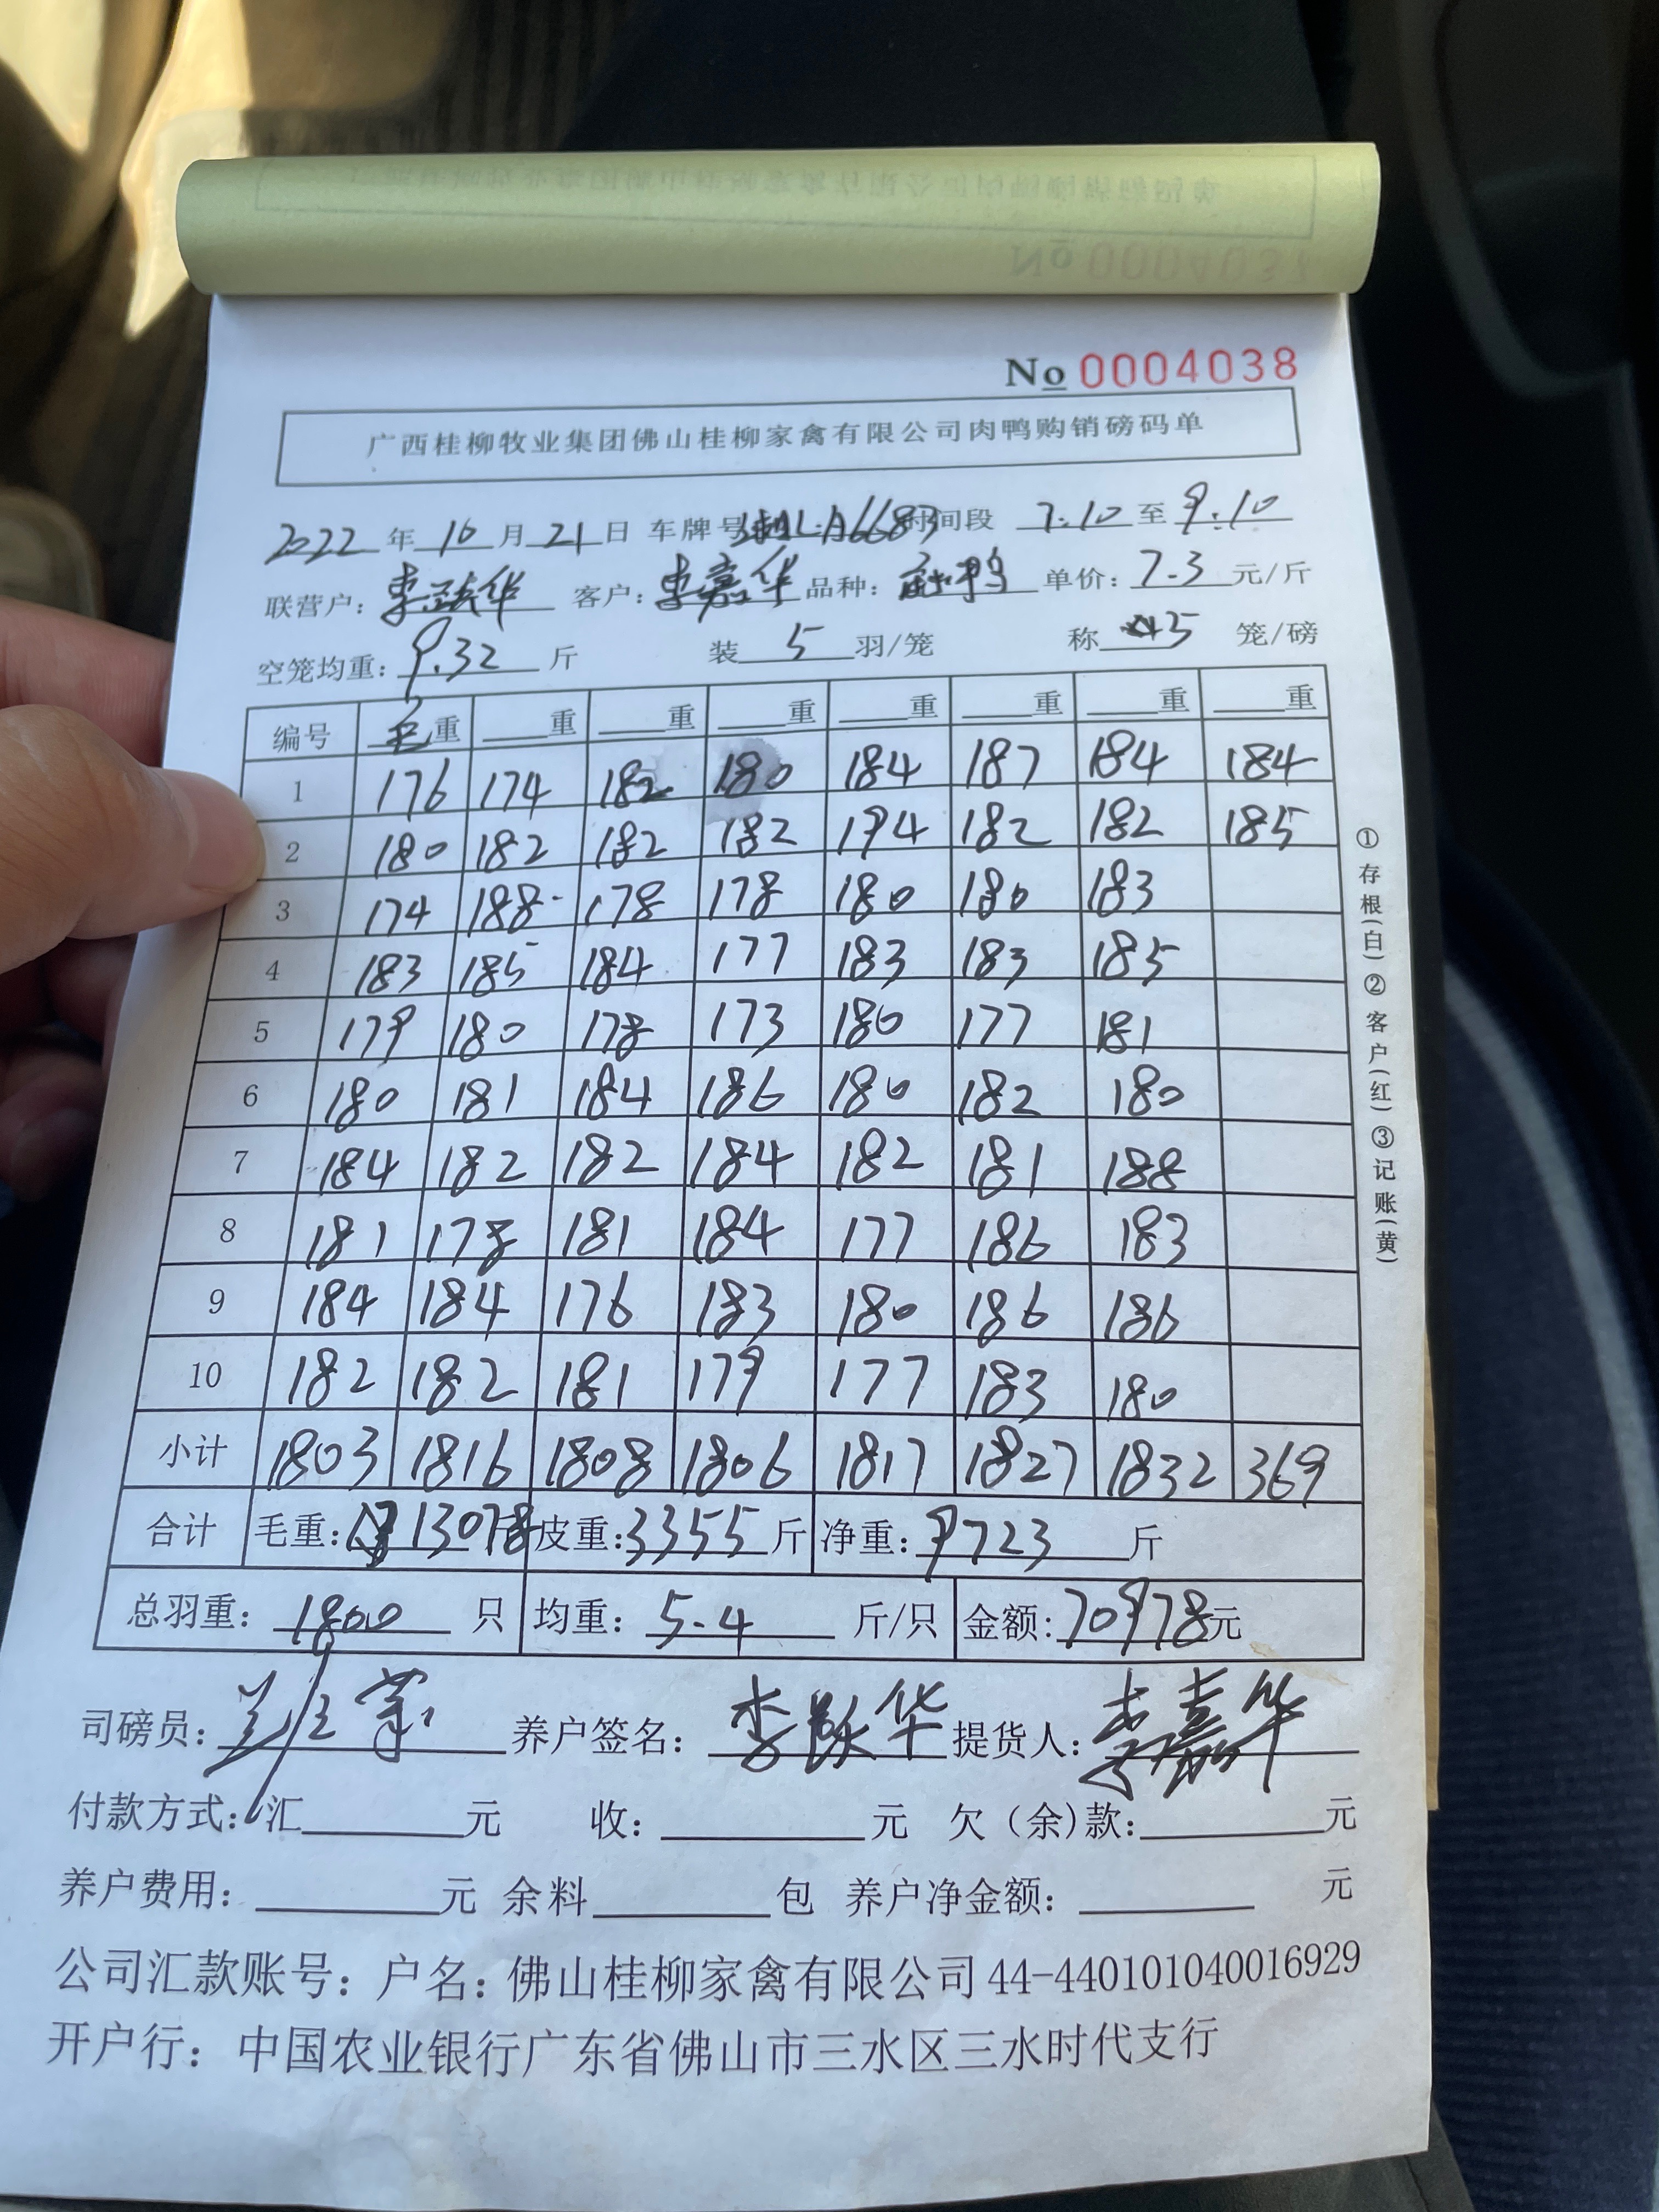 No 0004038
广西桂柳牧业集团佛山桂柳家禽有限公司肉鸭购销磅码单
2022 年 10 月 21 日 车牌号 A6683 时间段 7.10 至 9.10
联营户: 李跃华 客户: 李嘉华 品种: 单价: 7.3 元/斤
空笼均重: 9.32 斤 装 5 羽/笼 称 45 笼/磅
编号 毛重 重 重 重 重 重 重 重
1 176 174 182 180 184 187 184 184
2 180 182 182 182 194 182 182 185
3 174 188 178 178 180 180 183
4 183 185 184 177 183 183 185
5 179 180 178 173 180 177 181
6 180 181 184 186 180 182 180
7 184 182 182 184 182 181 188
8 181 178 181 184 177 186 183
9 184 184 176 183 180 186 186
10 182 182 181 179 177 183 180
小计 1803 1816 1808 1806 1817 1827 1832 369
合计 毛重: 13078 斤 皮重: 3355 斤 净重: 9723 斤
总羽重: 1800 只 均重: 5.4 斤/只 金额: 70978 元
司磅员: 养户签名: 李跃华 提货人: 李嘉华
付款方式: 汇 元 收: 元 欠（余)款: 元
养户费用: 元 余料 包 养户净金额: 元
公司汇款账号: 户名: 佛山桂柳家禽有限公司 44-440101040016929
开户行: 中国农业银行广东省佛山市三水区三水时代支行
①存根(白)②客户(红)③记账(黄)